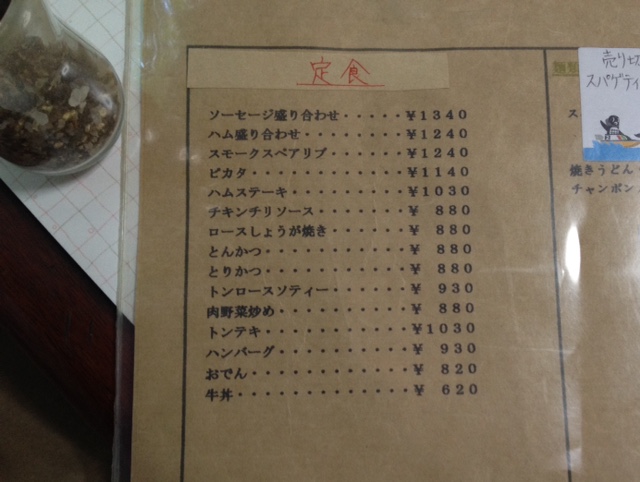 定食
ソーセージ盛り合わせ・・・・・¥1340
ハム盛り合わせ・・・・・・・・¥1240
スモークスペアリブ・・・・・・¥1240
ピカタ・・・・・・・・・・・・¥1140
ハムステーキ・・・・・・・・・¥1030
チキンチリソース・・・・・・・¥ 880
ロースしょうが焼き・・・・・・¥ 880
とんかつ・・・・・・・・・・・¥ 880
とりかつ・・・・・・・・・・・¥ 880
トンロースソティー・・・・・・¥ 930
肉野菜炒め・・・・・・・・・・¥ 880
トンテキ・・・・・・・・・・・¥1030
ハンバーグ・・・・・・・・・・¥ 930
おでん・・・・・・・・・・・・¥ 820
牛丼・・・・・・・・・・・・・¥ 620
売り切
スパゲティ
ス
焼きうどん・
チャンポン